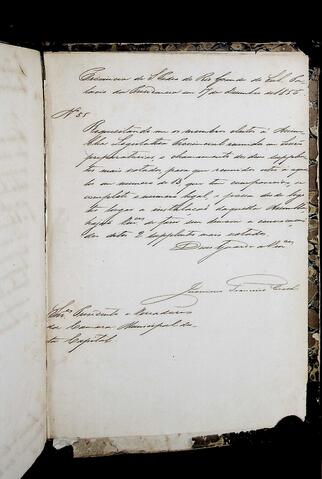 Provincia de S. Pedro do Rio Grande do Sul, Pa-
lacio da Presidencia em 9 de Dezembro de 1856
Nº 55
Requisitando-me os membros eleitos á Assem-
bléa Legislativa Provincial reunidos em sessão
preparatoria o chamamento de dous supplen-
tes mais votados, para que reunidos estes a aquel-
les em numero de 13 que tem comparecido, se
complete o numero legal, e possa ter lo-
gar a installação daquella Assembléa,
haja Vmces de
dos ditos 2 supplentes mais votados.
Deos Guarde a Vmces
Snres Presidente e Vereadores
da Camara Municipal des-
ta Capital